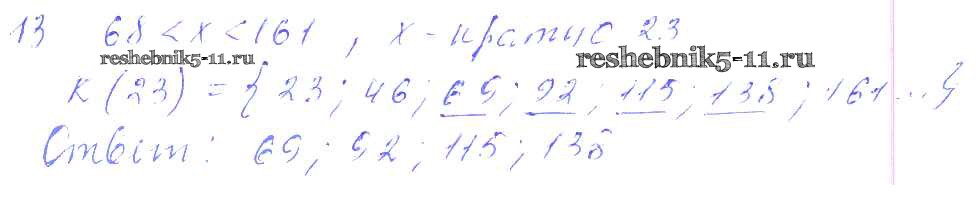 13 68 < x < 161 , x - кратно 23
reshebnik5-11.ru reshebnik5-11.ru
K (23) = { 23 ; 46 ; 69 ; 92 ; 115 ; 138 ; 161 ... }
Ответ : 69 ; 92 ; 115 ; 138